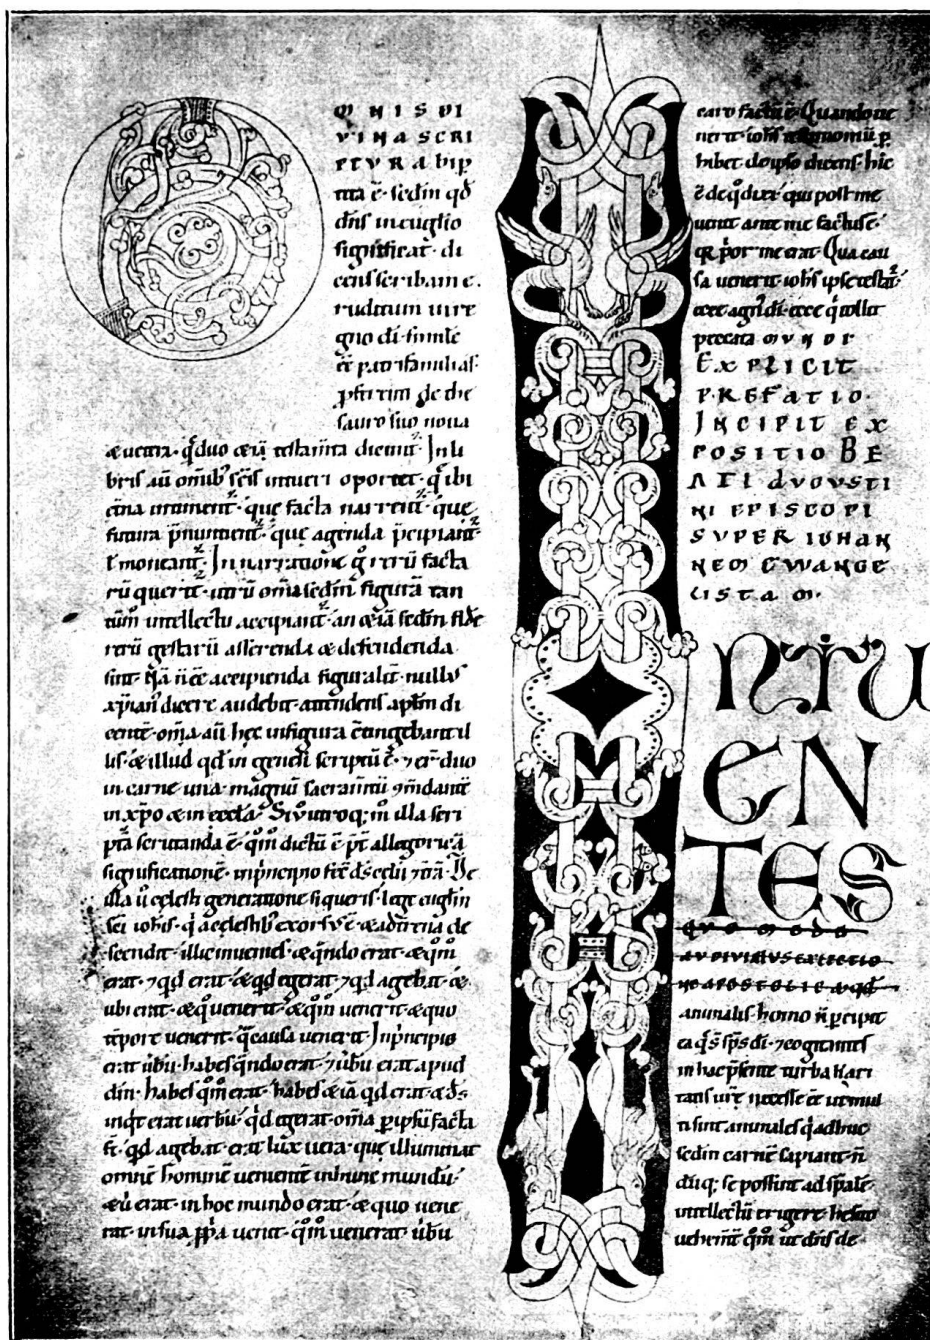 OMNIS DI
VINA SCRI
PTVRA bip
tita ē· sedm̄ qđ
dn̄s in euglio
significat· di
cens scribam e
ruditum in re
gno di· simile
ēē patrisfamilias·
pferenti de the
sauro suo noua
& uetera· q̄ duo &iā testam̄ta dicunt᷑· In li
bris aū omib; scīs intueri oportet· q̄ ibi
et̄na· que facta narrent᷑· que
futura p̄nuntient᷑· que agenda p̄cipiant᷑
In narratione g° rerū facta
rū querit᷑· utrū om̄a sedm̄ figurā tan
tūm intellectu accipiant᷑· an &iā sedm̄ fidē
rerū gestarū asserenda & defendenda
sint· accipienda figuralit᷑· nullus
xpian' dicere audebit· attendens aplm̄ di
centē· om̄a aū hec in figura ctingebant il
lis· & illud qđ in genesi scriptū ē· ⁊ er̄ duo
in carne una· magnū sacram̄tū om̄dante
in xp̄o & in eccl̄a· Si g° utroq; m° illa scri
pta scrutanda ē· q°m° dictū ē p̄t allegoricā
significationē· in p̄ncipio fec̄ ds celū ⁊ t̄rā· De
illa ū celesti generatione si queris· lege euglm̄
sci iohis· q̄ a celestib; exorsus ē & ad terrena de
scendit· illic inuenies· & q̄ndo erat· & q°m°
erat· ⁊ qđ erat· & qđ egerat· ⁊ qđ agebat· &
ubi erat· & q° uenerit· & q°m° uenerit· & quo
t̄pore uenerit· q̄ causa uenerit· In p̄ncipio
erat ūbū· habes q̄ndo erat· ⁊ ūbū erat apud
dm̄· habes q°m° erat· habes &iā qđ erat· & ds̄
inq̄t erat uerbū· qđ egerat· om̄a p ipsū facta
st̄· qđ agebat· erat lux uera· que illuminat
omnē hominē uenientē in hunc mundū·
& ū erat· in hoc mundo erat· & quo uene
rat· in sua ppa uenit· q°m° uenerat· ūbū
caro factū ē· Quando ue
nerit· iohs testimoniū p
hibet de ipso dicens· hic
ē de q° dixi· qui post me
uenit ante me factus ē·
q̄ por me erat· Qua cau
sa uenerit· iohs ipse testat᷑·
ecce agn' di· ecce q̄ tollit
peccata MVNDI·
EXPLICIT
PREFATIO·
INCIPIT EX
POSITIO BE
ATI AVGVSTI
NI EPISCOPI
SVPER IOHAN
NEM EWANGE
LISTAM·
INTU
EN
TES
QVOMODO
AVDIVIMVS EX LECTIO
NE APOSTOLICA & qđ
animalis homo n̄ pcipit
ea q̄ s̄ sps di· ⁊ cogitantes
in hac p̄sente turba kari
tatis ur̄e necesse ēē ut mul
ti sint animales q̄ adhuc
sedm̄ carnē sapiant· n̄
dūq; se possint ad sp̄ale
intellectū erigere· hesito
uehem̄t q°m° ut dn̄s de